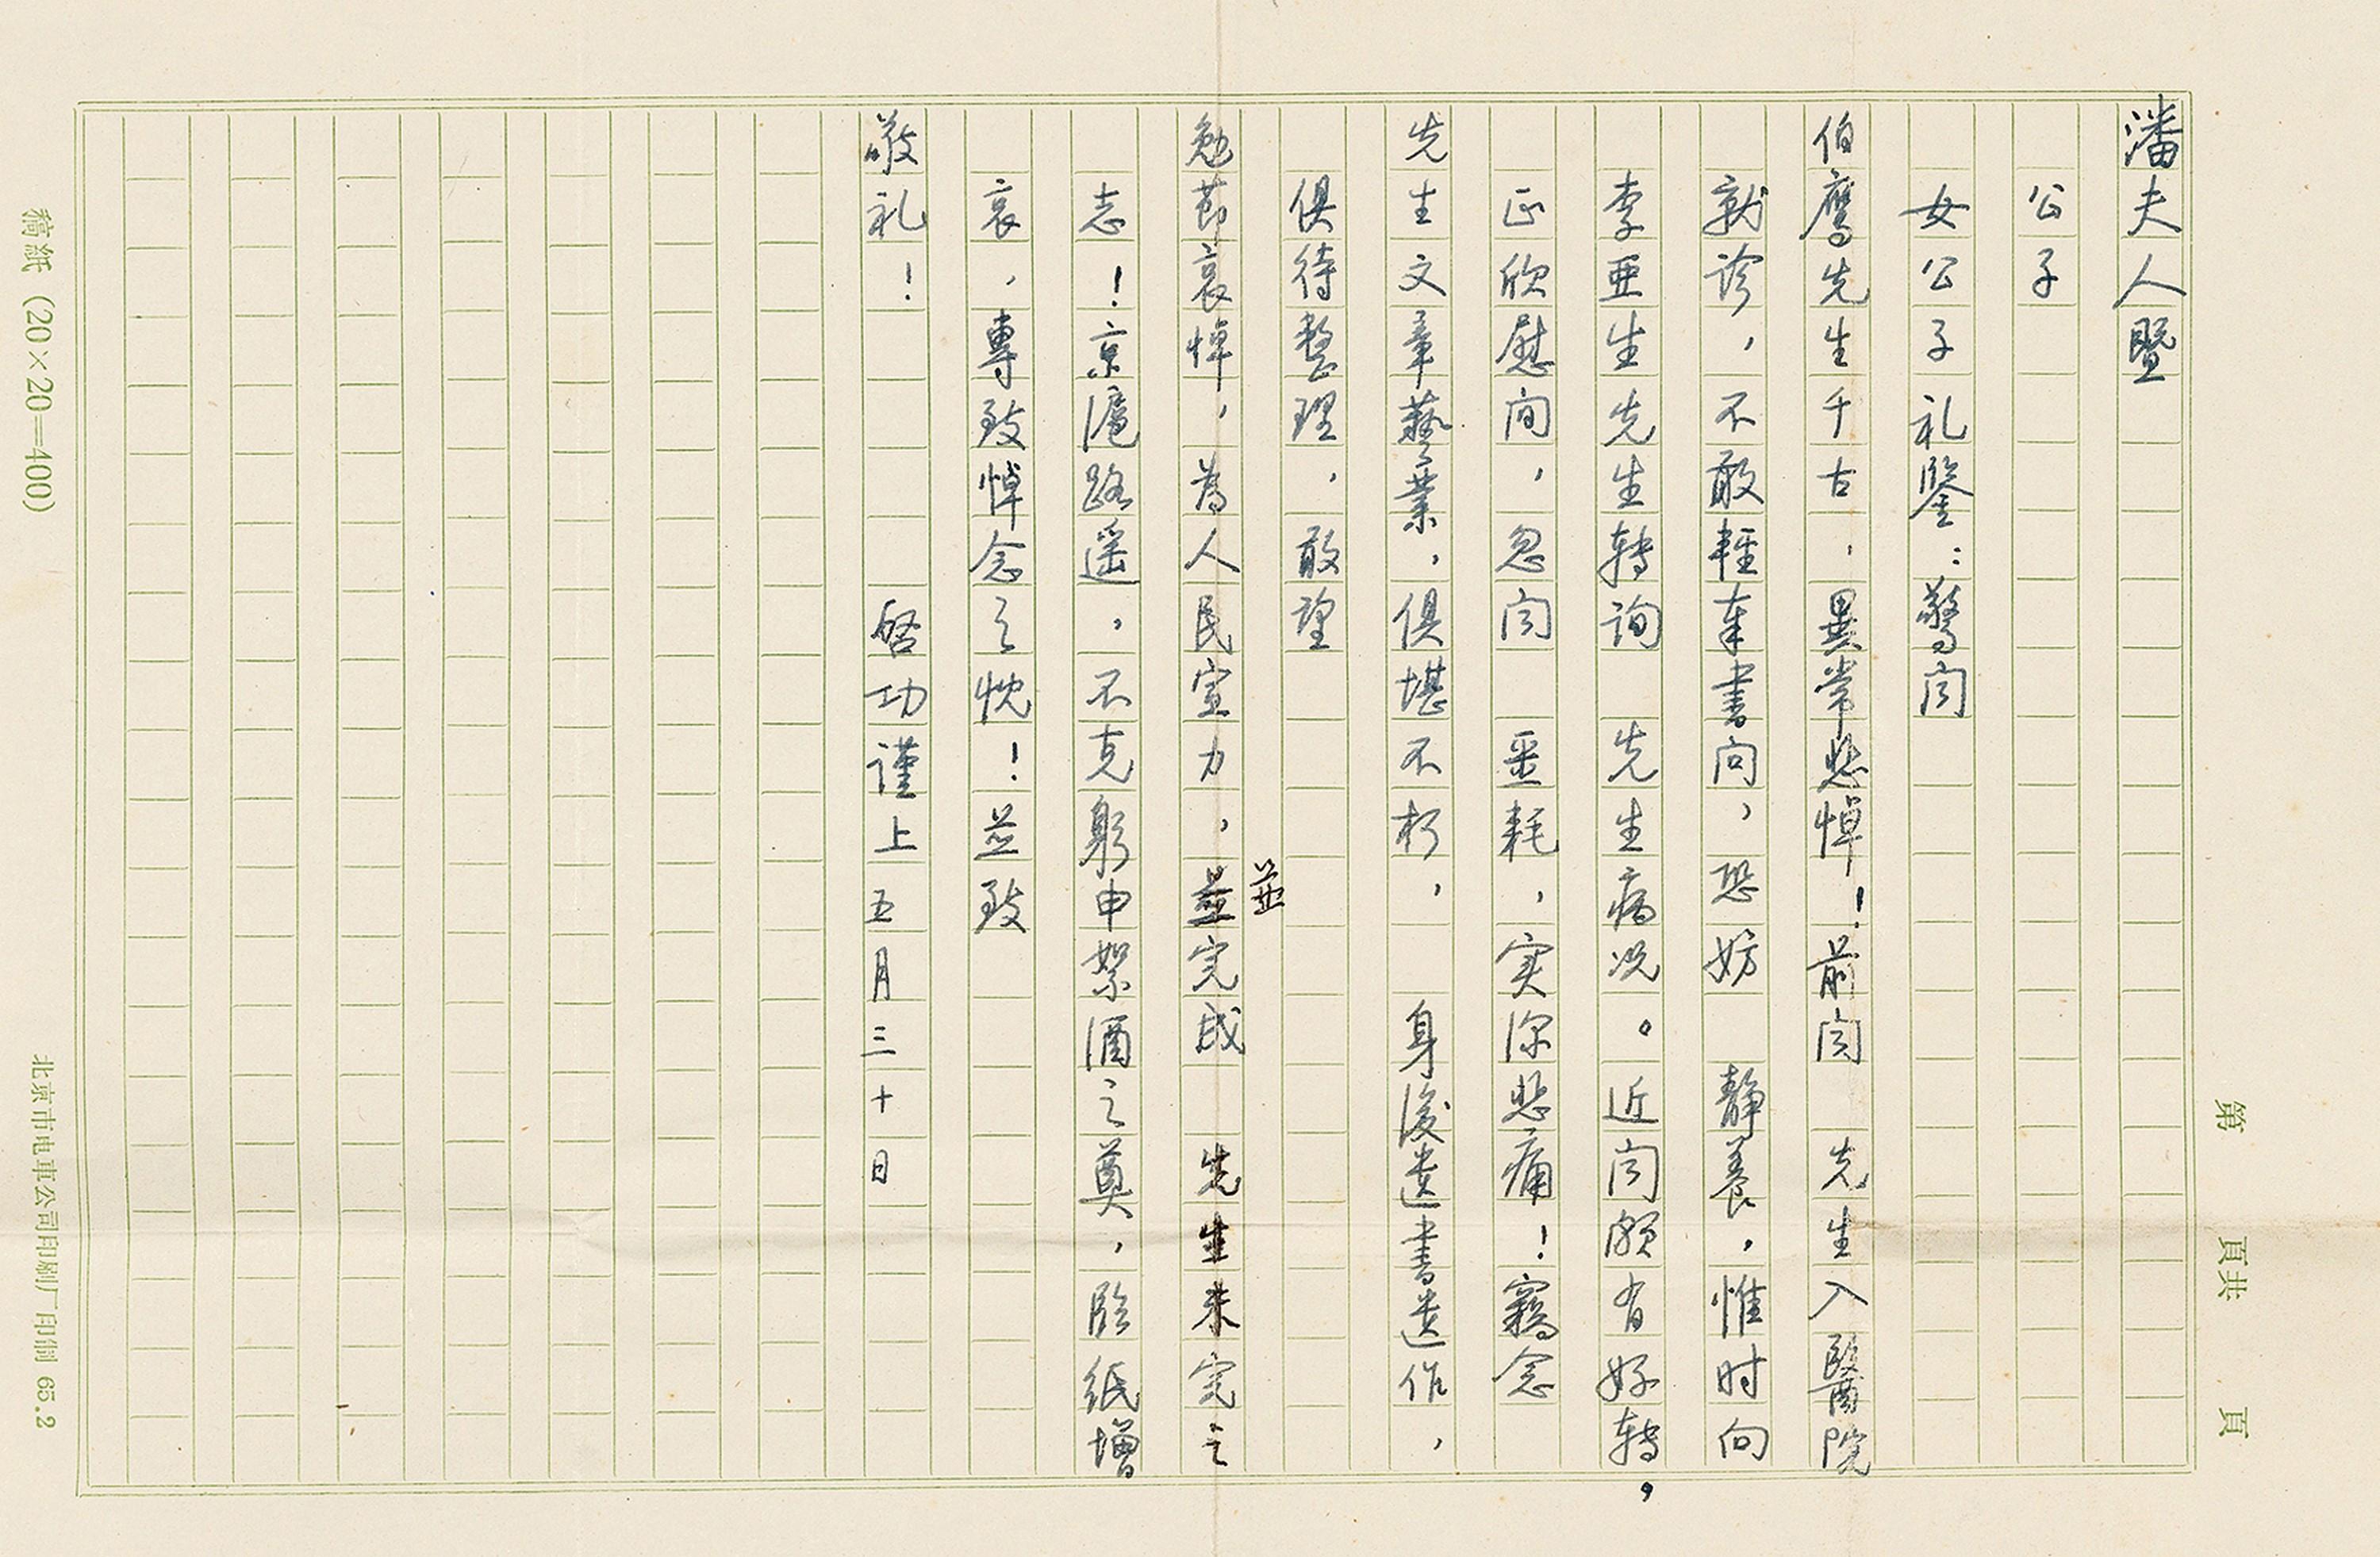 潘夫人暨
公子
女公子礼鑒：驚闻
伯鹰先生千古，異常悲悼！前闻　先生入醫院
就诊，不敢輕率書问，恐妨　静養，惟时向
李亜生先生转询　先生病况。近闻頗有好转，
正欣慰间，忽闻　噩耗，实深悲痛！竊念
先生文章藝業，俱堪不朽，　身後遺書遺作，
俱待整理，敢望
勉莭哀悼，為人民宣力，並完成　先生未完之
並
志！京滬路遥，不克躬申絮酒之奠，临纸增
哀，專致悼念之忱！並致
敬礼！　　　　启功谨上五月三十日
第　頁共　頁
稿紙（20×20=400）
北京市电車公司印刷厂印制 65.2